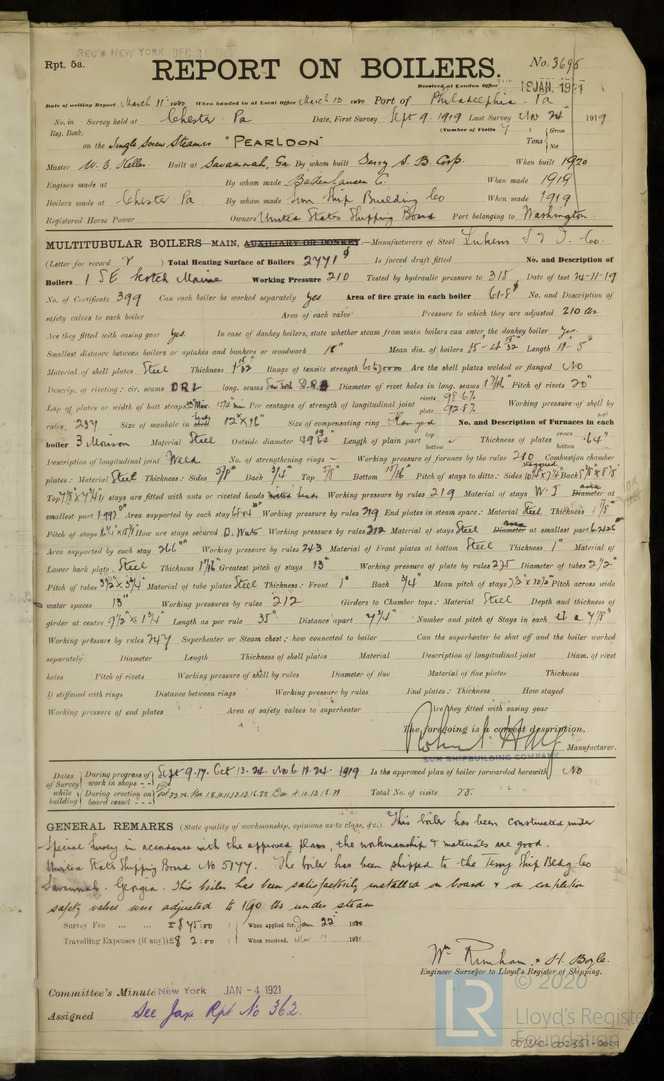 REC'D NEW YORK DEC 31
Rpt. 5a.
REPORT ON BOILERS.
No. 3695
Received at London Office
19 JAN. 1921
Date of writing Report March 11th 1920 When handed in at Local Office March 13 1920 Port of Philadelphia. Pa
No. in Survey held at Chester. Pa Date, First Survey Sept 9. 1919 Last Survey Nov 24 1919
Reg. Book. (Number of Visits 7)
on the Single Screw Steamer "PEARLDON" Tons { Gross Net
Master W. E. Built at Savannah, Ga. By whom built Terry S. B. Corp. When built 1920
Engines made at By whom made When made 1919
Boilers made at Chester Pa By whom made Sun Ship Building Co When made 1919
Registered Horse Power Owners United States Shipping Board Port belonging to Washington
MULTITUBULAR BOILERS—MAIN, AUXILIARY OR DONKEY.—Manufacturers of Steel Lukens S & I. Co.
(Letter for record r) Total Heating Surface of Boilers 2771 Is forced draft fitted No. and Description of
Boilers 1 SE Scotch Marine Working Pressure 210 Tested by hydraulic pressure to 315 Date of test 24-11-19
No. of Certificate 399 Can each boiler be worked separately Yes Area of fire grate in each boiler 61.8 No. and Description of
safety valves to each boiler Area of each valve Pressure to which they are adjusted 210 lbs.
Are they fitted with easing gear Yes. In case of donkey boilers, state whether steam from main boilers can enter the donkey boiler Yes.
Smallest distance between boilers or uptakes and bunkers or woodwork 18" Mean dia. of boilers Length 11'-5"
Material of shell plates Steel Thickness Range of tensile strength Are the shell plates welded or flanged No
Descrip. of riveting: cir. seams D.R.L long. seams Diameter of rivet holes in long. seams Pitch of rivets 20"
Lap of plates or width of butt straps Per centages of strength of longitudinal joint rivets 98.6% plate 92.8% Working pressure of shell by
rules 237 Size of manhole in shell 12" x 16" Size of compensating ring Flanged No. and Description of Furnaces in each
boiler 3 Morison Material Steel Outside diameter Length of plain part top bottom Thickness of plates crown bottom .64"
Description of longitudinal joint Weld No. of strengthening rings - Working pressure of furnace by the rules 210 Combustion chamber
plates: Material Steel Thickness: Sides 5/8" Back Top 5/8" Bottom 13/16" Pitch of stays to ditto: Sides Back
Top If stays are fitted with nuts or riveted heads Working pressure by rules 219 Material of stays W. I Diameter at
smallest part Area supported by each stay Working pressure by rules 219 End plates in steam space: Material Steel Thickness 1 1/8"
Pitch of stays How are stays secured D. Nuts Working pressure by rules 212 Material of stays Steel Diameter at smallest part 6.2426"
Area supported by each stay 266" Working pressure by rules 243 Material of Front plates at bottom Steel Thickness 1" Material of
Lower back plate Steel Thickness Greatest pitch of stays 13" Working pressure of plate by rules 275 Diameter of tubes 2 1/2"
Pitch of tubes Material of tube plates Steel Thickness: Front 1" Back 3/4" Mean pitch of stays 7 1/2" x 10 1/2" Pitch across wide
water spaces 13" Working pressures by rules 212 Girders to Chamber tops: Material Steel Depth and thickness of
girder at centre 9 1/2" x 1 3/4" Length as per rule 35" Distance apart 7 3/4" Number and pitch of Stays in each
Working pressure by rules 247 Superheater or Steam chest; how connected to boiler Can the superheater be shut off and the boiler worked
separately Diameter Length Thickness of shell plates Material Description of longitudinal joint Diam. of rivet
holes Pitch of rivets Working pressure of shell by rules Diameter of flue Material of flue plates Thickness
If stiffened with rings Distance between rings Working pressure by rules End plates: Thickness How stayed
Working pressure of end plates Area of safety valves to superheater Are they fitted with easing gear
The foregoing is a correct description,
Manufacturer.
SUN SHIPBUILDING COMPANY
Dates of Survey while building
During progress of work in shops - - Sept 9.17. Oct 13.24. Nov 6.18.24. 1919 Is the approved plan of boiler forwarded herewith No
During erection on board vessel - - - Total No. of visits
GENERAL REMARKS (State quality of workmanship, opinions as to class, &c.) This boiler has been constructed under
Special Survey in accordance with the approved plans, the workmanship & materials are good.
United States Shipping Board No 5177. The boiler has been shipped to the Terry Ship Bldg Co
Savannah. Georgia. This boiler has been satisfactorily installed on board & on completion
safety valves were adjusted to 190 lbs under steam
Survey Fee ... ... $45:00 : When applied for, Jan 22 1920
Travelling Expenses (if any) $ 2:00 : When received, Nov 11 19
Wm & H. Boyle.
Engineer Surveyor to Lloyd's Register of Shipping.
Committee's Minute New York JAN -4 1921
Assigned See Jax Rpt No 362.
© 2020
Lloyd's Register
Foundation
LR
002340-002351-0049